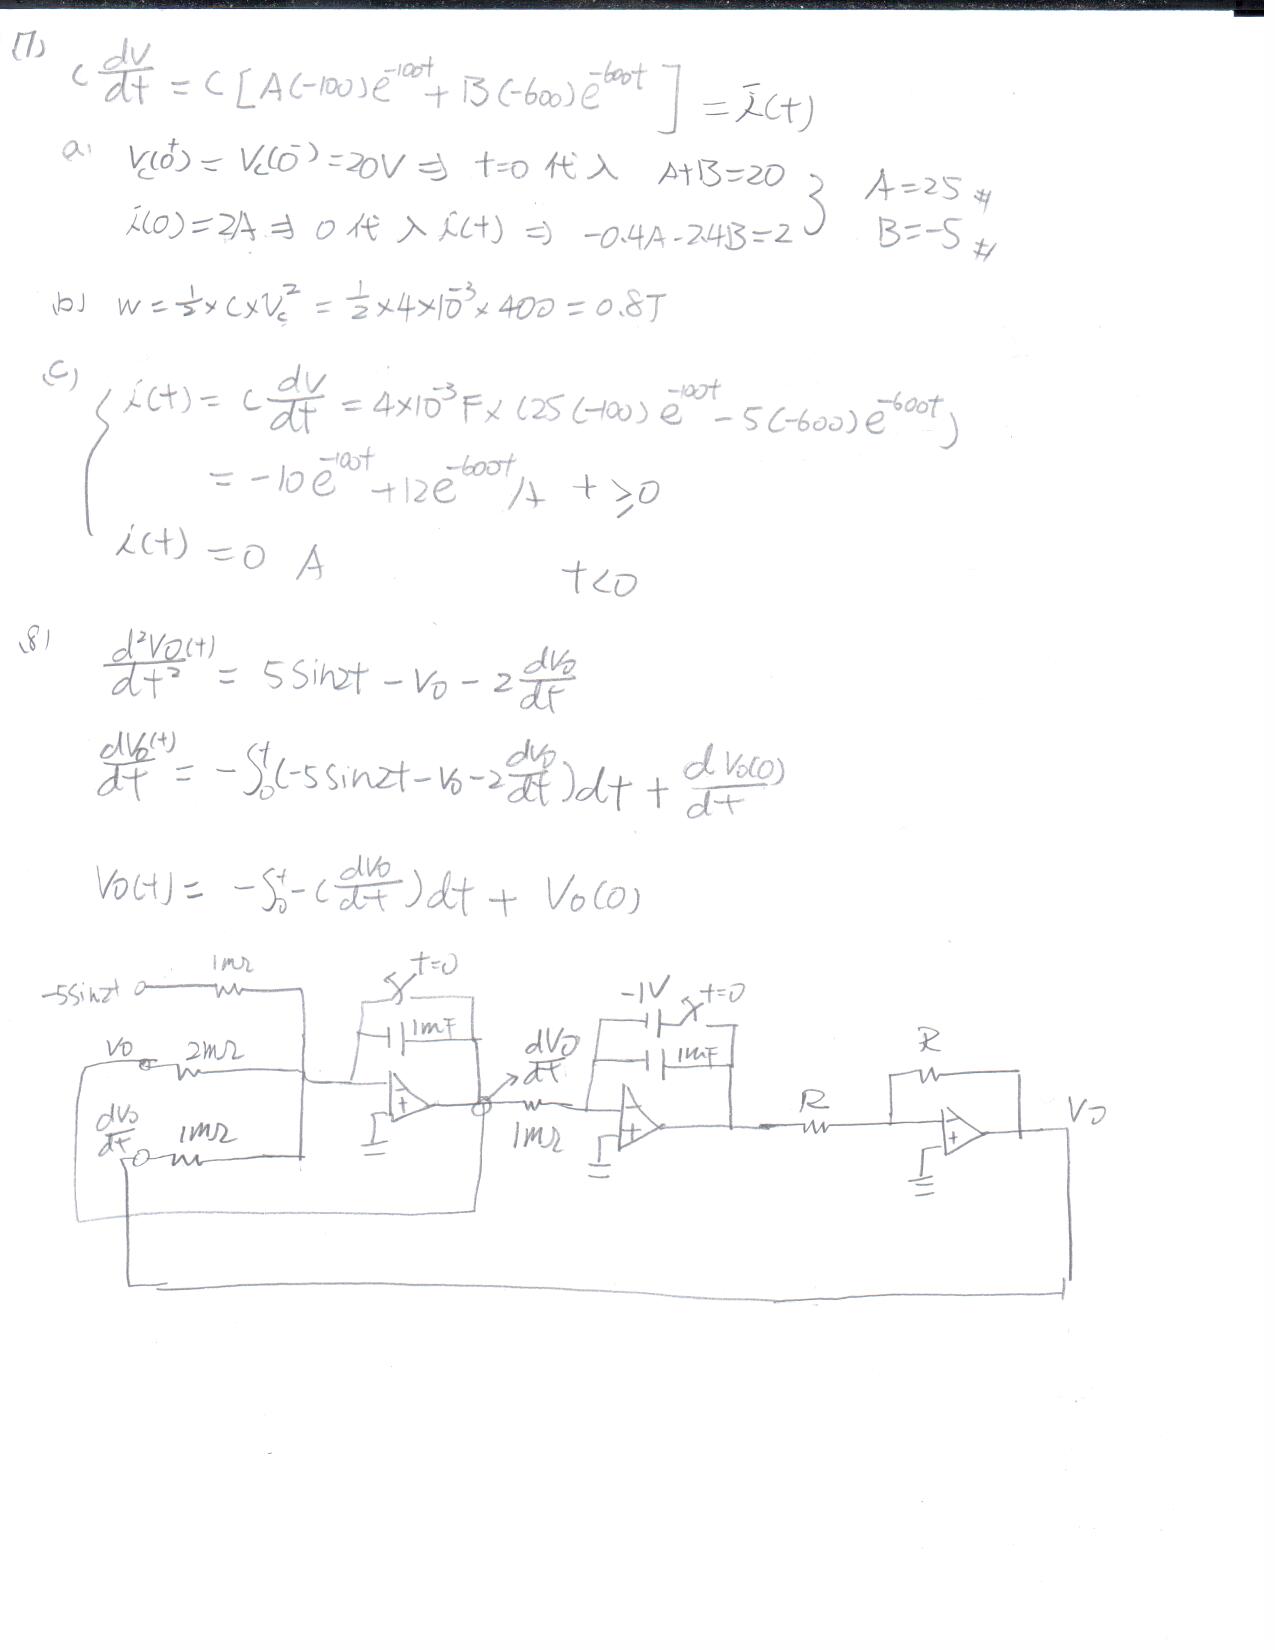 (7) C dV/dt = C [A(-100)e^-100t + B(-600)e^-600t] = i(t)
a. Vc(0⁺) = Vc(0⁻) = 20V ⇒ t=0 代入 A+B=20 } A=25 #
i(0)=2A ⇒ 0 代入 i(t) ⇒ -0.4A-2.4B=2 B=-5 #
(b) W = 1/2 × C × Vc² = 1/2 × 4×10⁻³ × 400 = 0.8J
(c) { i(t) = C dV/dt = 4×10⁻³F × (25(-100)e^-100t - 5(-600)e^-600t)
= -10e^-100t + 12e^-600t A t ≥ 0
i(t) = 0 A t<0
(8) d²Vo(t)/dt² = 5sin2t - Vo - 2 dVo/dt
dVo(t)/dt = -∫₀ᵗ(-5sin2t - Vo - 2 dVo/dt)dt + dVo(0)/dt
Vo(t) = -∫₀ᵗ-(dVo/dt)dt + Vo(0)
-5sin2t 1mΩ t=0
-1V t=0
Vo 2mΩ 1mF dVo/dt 1mF R
dVo/dt 1mΩ 1mΩ R Vo